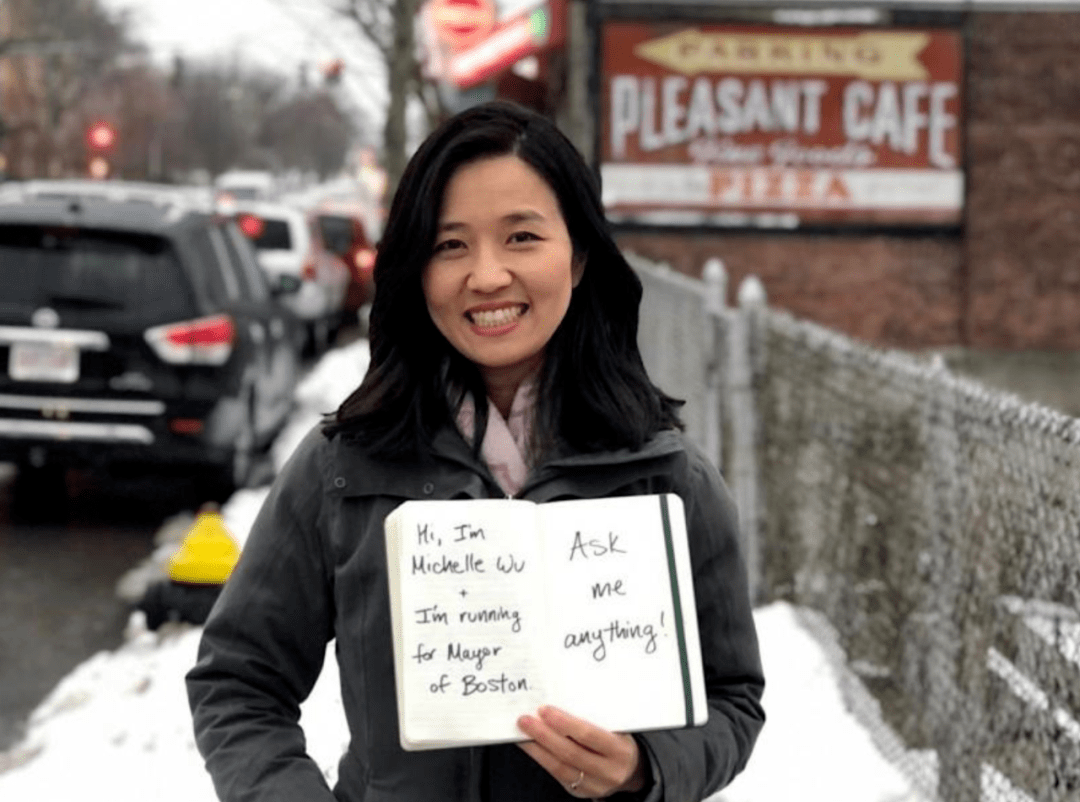 PARKING
PLEASANT CAFE
PIZZA
Hi, I'm
Michelle Wu
+
I'm running
for Mayor
of Boston.
Ask
me
anything!